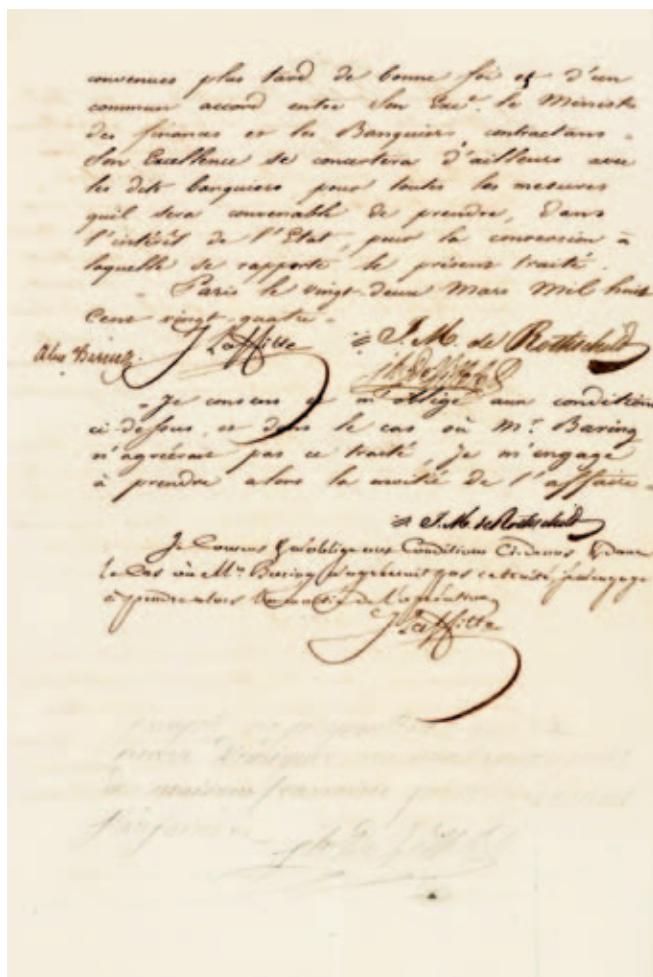 convenues plus tard de bonne foi et d'un
commun accord entre Son Exce. le Ministre
des finances et les Banquiers contractans.
Son Excellence se concertera d'ailleurs avec
les dits banquiers pour toutes les mesures
qu'il sera convenable de prendre, dans
l'intérêt de l'Etat, pour la conversion à
laquelle se rapporte le présent traité.
Paris le vingt deux Mars Mil huit
Cent vingt-quatre.
Alex Baring
J Laffitte
J. M. de Rothschild
Je consens et m'oblige aux condition
ci-dessus, et dans le cas où Mr. Baring
n'agréerait pas ce traité, je m'engage
à prendre alors la moitié de l'affaire.
J. M. de Rothschild
Je Consens & m'oblige aux Conditions Ci-dessus & dans
le Cas où Mr. Baring n'agréerait pas ce traité, je m'engage
à prendre alors la moitié de l'opération
J Laffitte